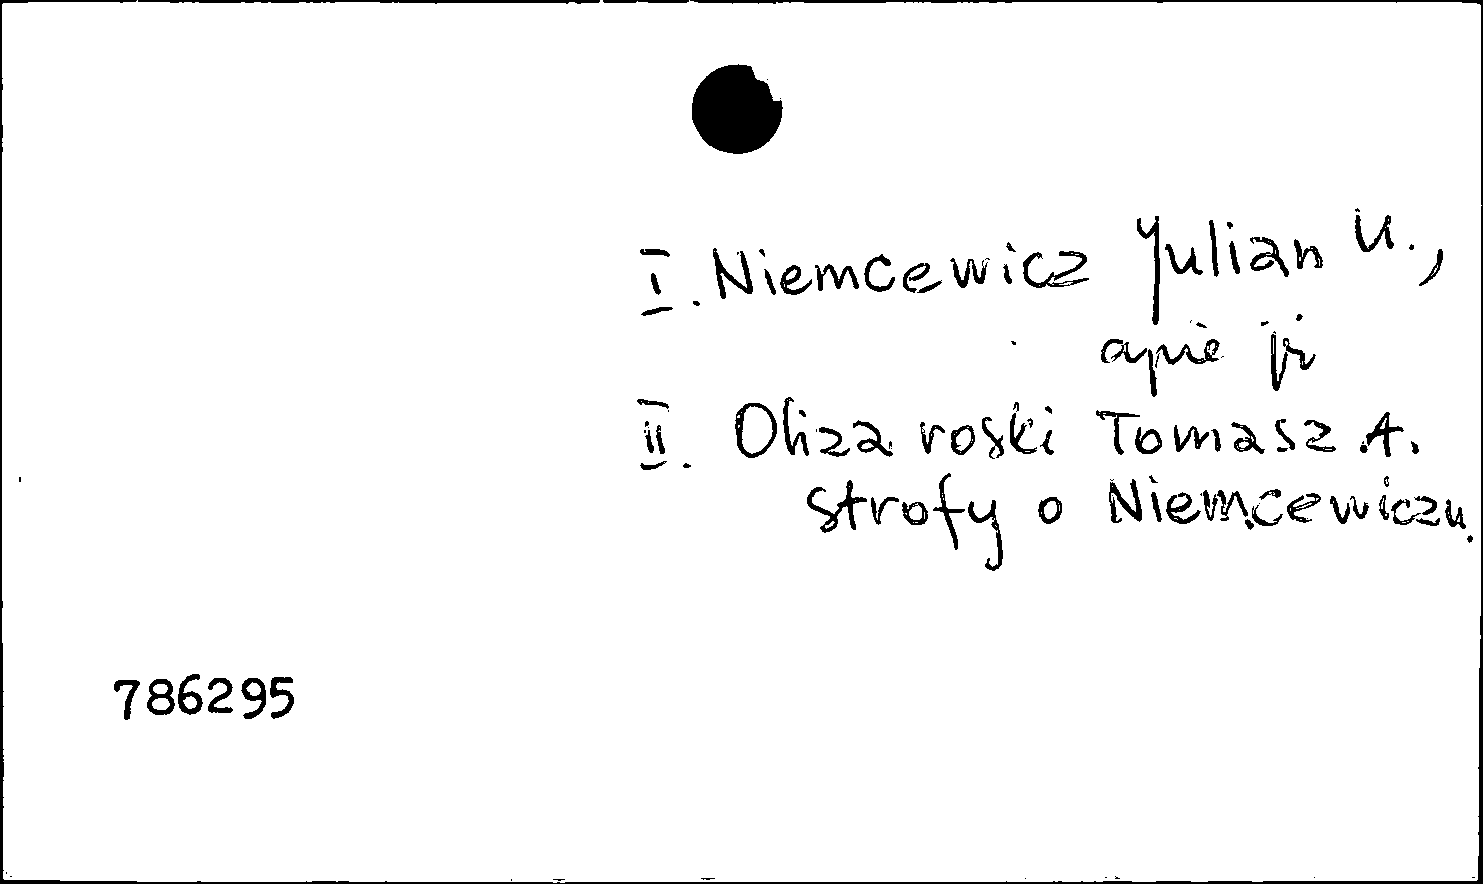 I. Niemcewicz Julian U.,
apie jį
II. Olizaroski Tomasz A.
Strofy o Niemcewiczu.
786295